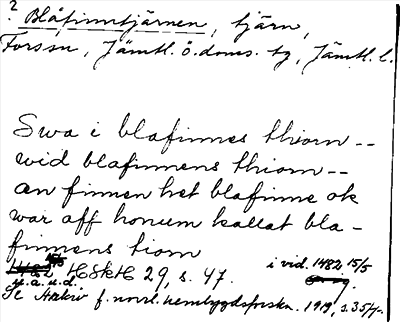 ? Blåfinntjärnen, tjärn,
Forssn, Jämtl. ö. doms. tg, Jämtl. l.
Swa i blafinnes thiorn --
wid blafinnens thiorn --
än finnen het blafinne ok
war aff honum kallat bla-
finnens tiorn
HSkH 29, s. 47.
i vid. 1482 15/5
Se Arkiv f. norrl. hembygdsforskn. 1919, s.